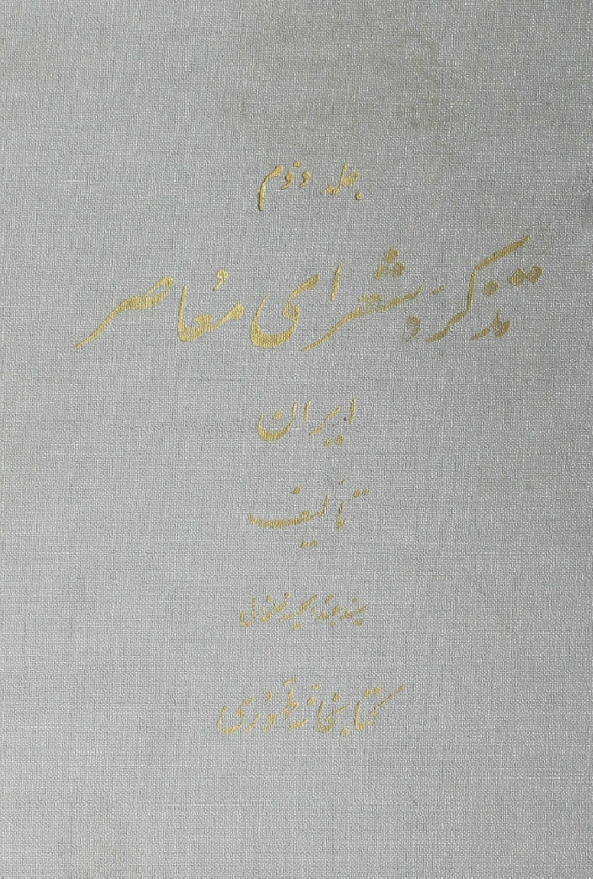 جلد دوم
تذکره شعرای معاصر
ایران
تألیف
سید عبدالحمید خلخالی
کتابخانه طهوری